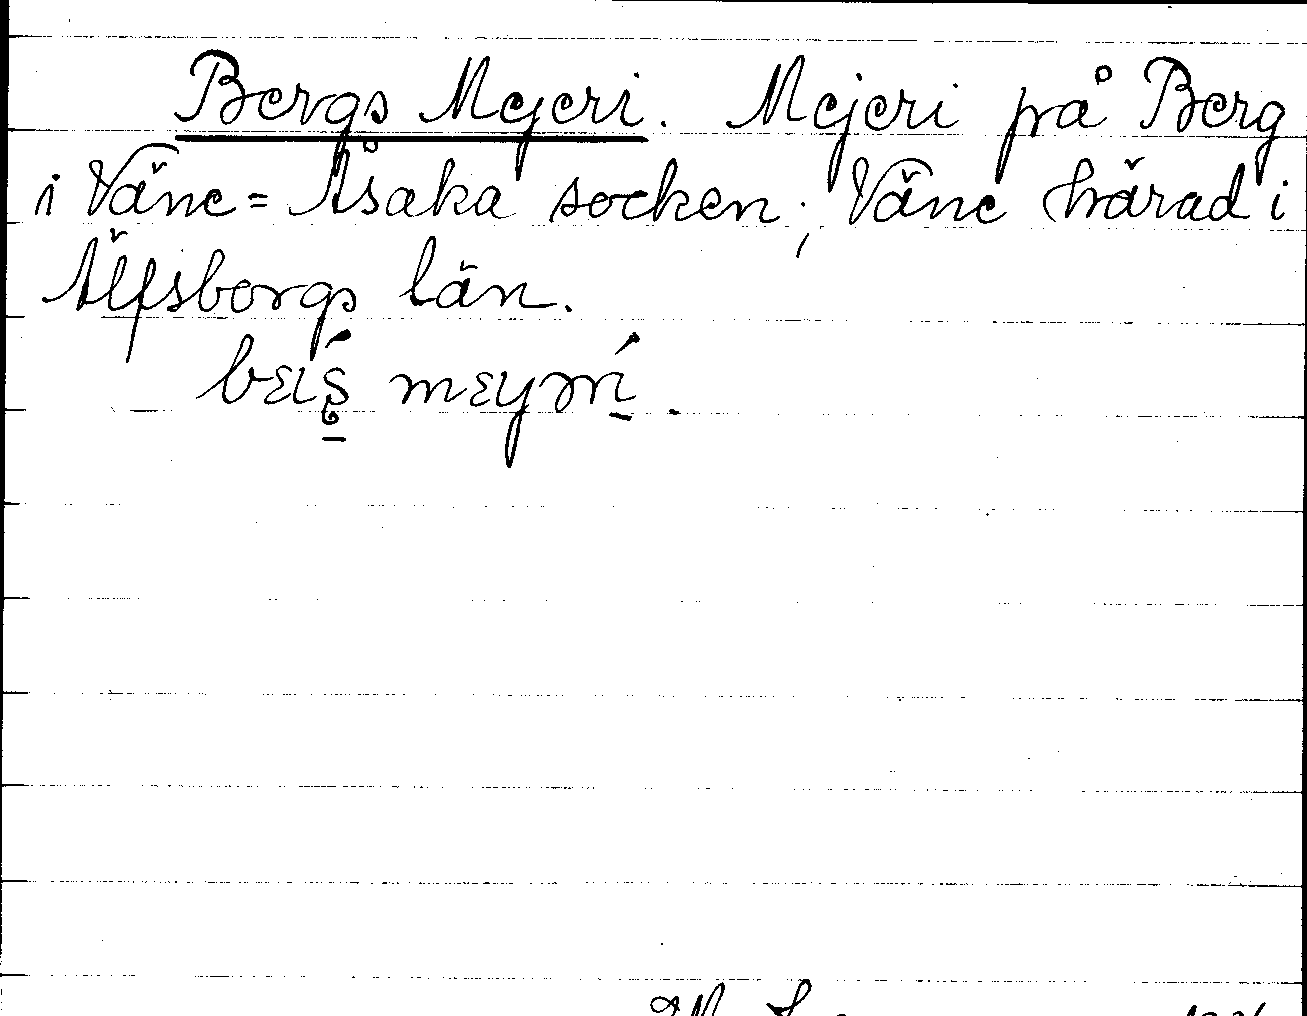 Bergs Mejeri. Mejeri på Berg
i Väne=Åsaka socken, Väne härad i
Älfsborgs län.